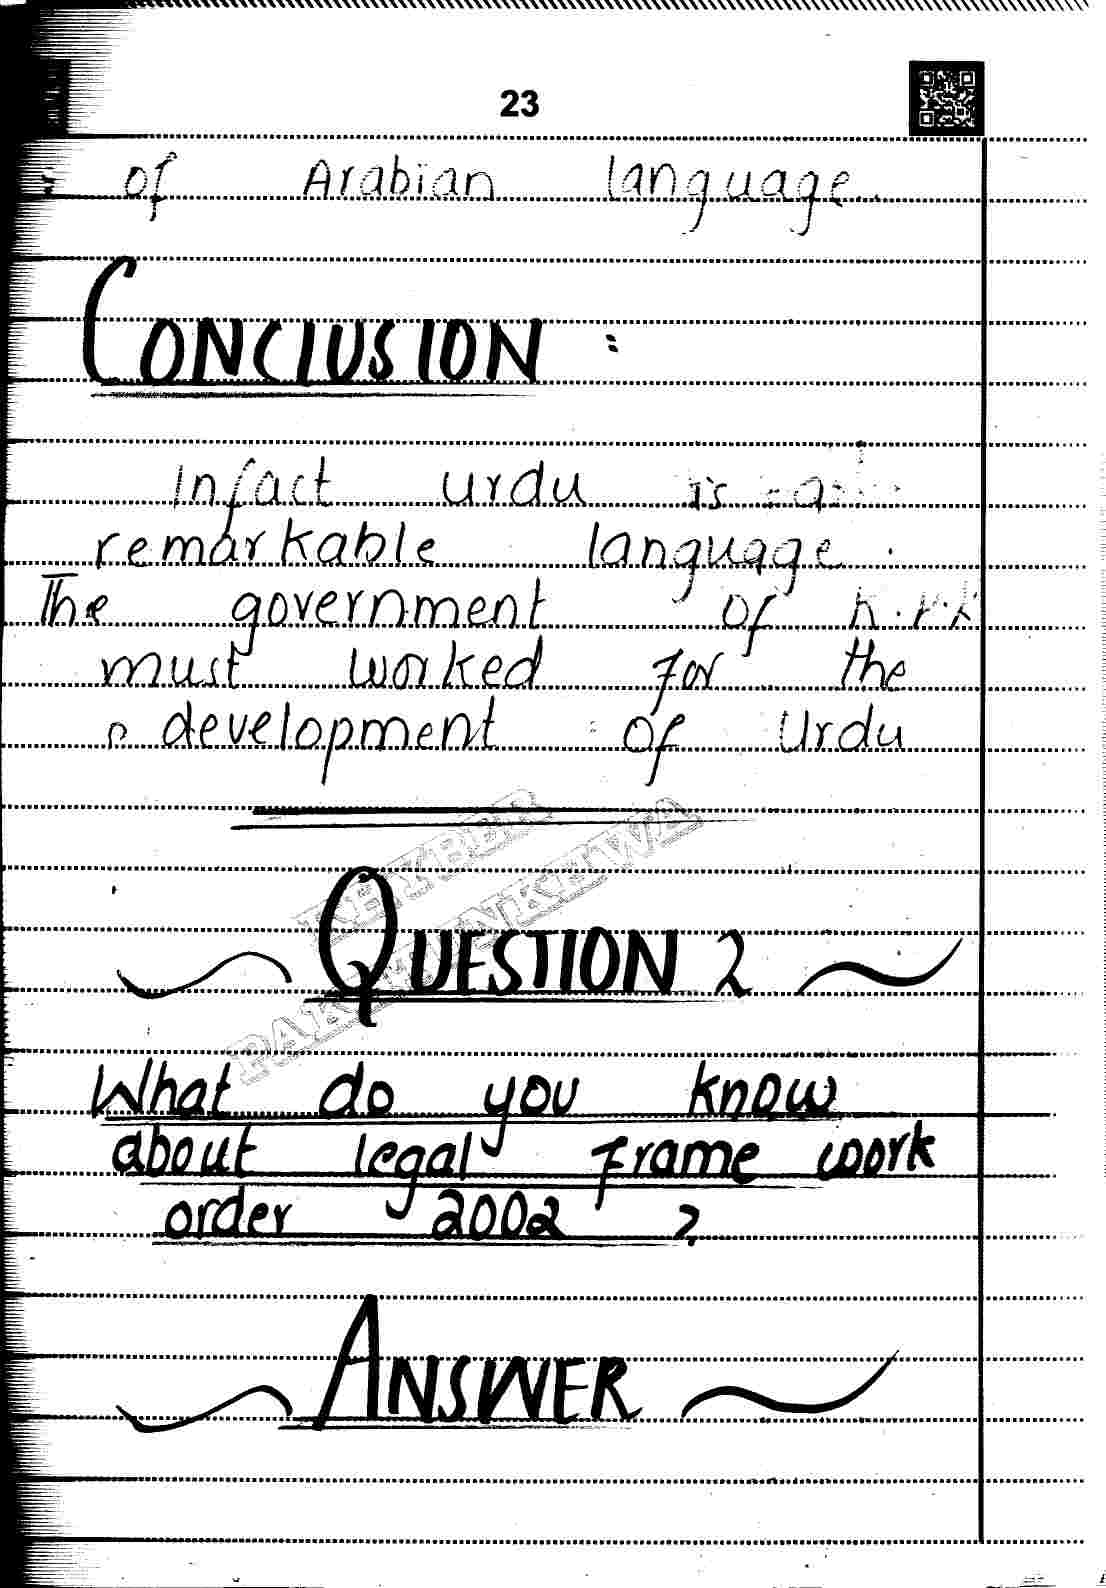 23
of Arabian language.
CONCLUSION :
Infact urdu is a
remarkable language.
The government of K.P.K
must worked for the
development of Urdu
KHYBER
PAKHTUNKHWA
QUESTION 2
What do you know
about legal frame work
order 2002 ?
ANSWER